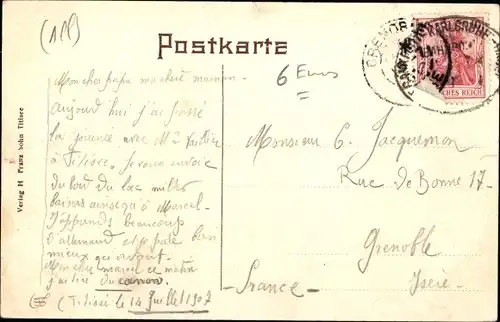 (1ll)
Postkarte
6 Euros
KARLSRUHE
DEUTSCHES REICH
Mon cher papa ma chère maman.
Aujourd'hui j'ai passé
la journée avec Mr
à Titisee. Je vous envoie
du bord du lac milles
baisers ainsi qu'à Marcel.
J'apprends beaucoup
d'allemand et je parle bien
mieux qu'avant.
ce matin
j'ai tiré du canon.
(Titisee le 14 Juillet 1907
Monsieur C. Jacquemon
Rue de Bonne 17
Grenoble
France Isère
Verlag H Franz Sohn Titisee